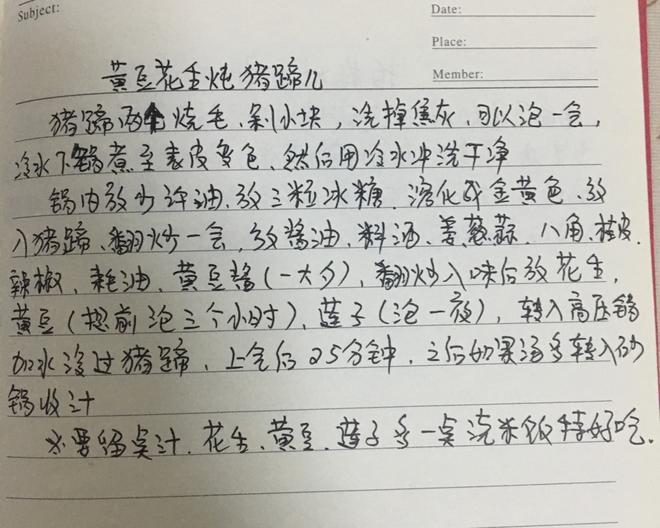 Subject:
Date:
Place:
Member:
黄豆花生炖猪蹄儿
猪蹄两个烧毛、剁小块，洗掉焦灰，可以泡一会，
冷水下锅煮至表皮变色，然后用冷水冲洗干净
锅内放少许油，放三粒冰糖，溶化成金黄色，放
入猪蹄、翻炒一会，放酱油、料酒、姜葱蒜、八角、桂皮、
辣椒、耗油、黄豆酱（一大勺），翻炒入味后放花生、
黄豆（提前泡三个小时）、莲子（泡一夜），转入高压锅
加水没过猪蹄，上气后25分钟，之后如果汤多转入砂
锅收汁
※要留点汁，花生、黄豆、莲子多一点浇米饭特好吃。